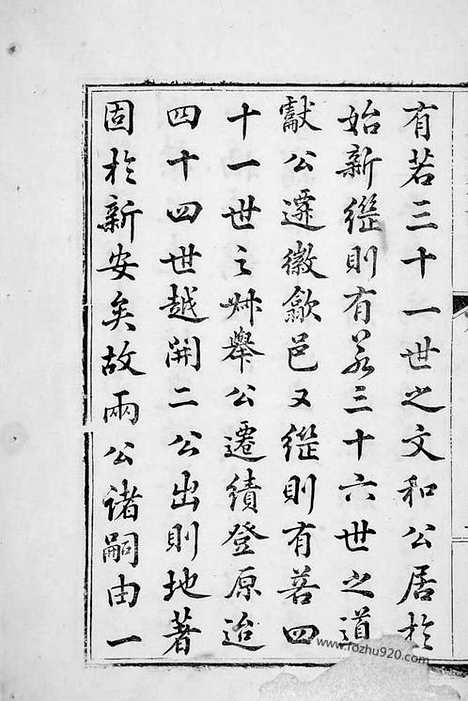 有若三十一世之文和公居於
始新繼則有若三十六世之道
獻公遷徽歙邑又繼則有若四
十一世之叔舉公遷績登原迨
四十四世越開二公出則地著
固於新安矣故兩公諸嗣由一
www.fozhu920.com